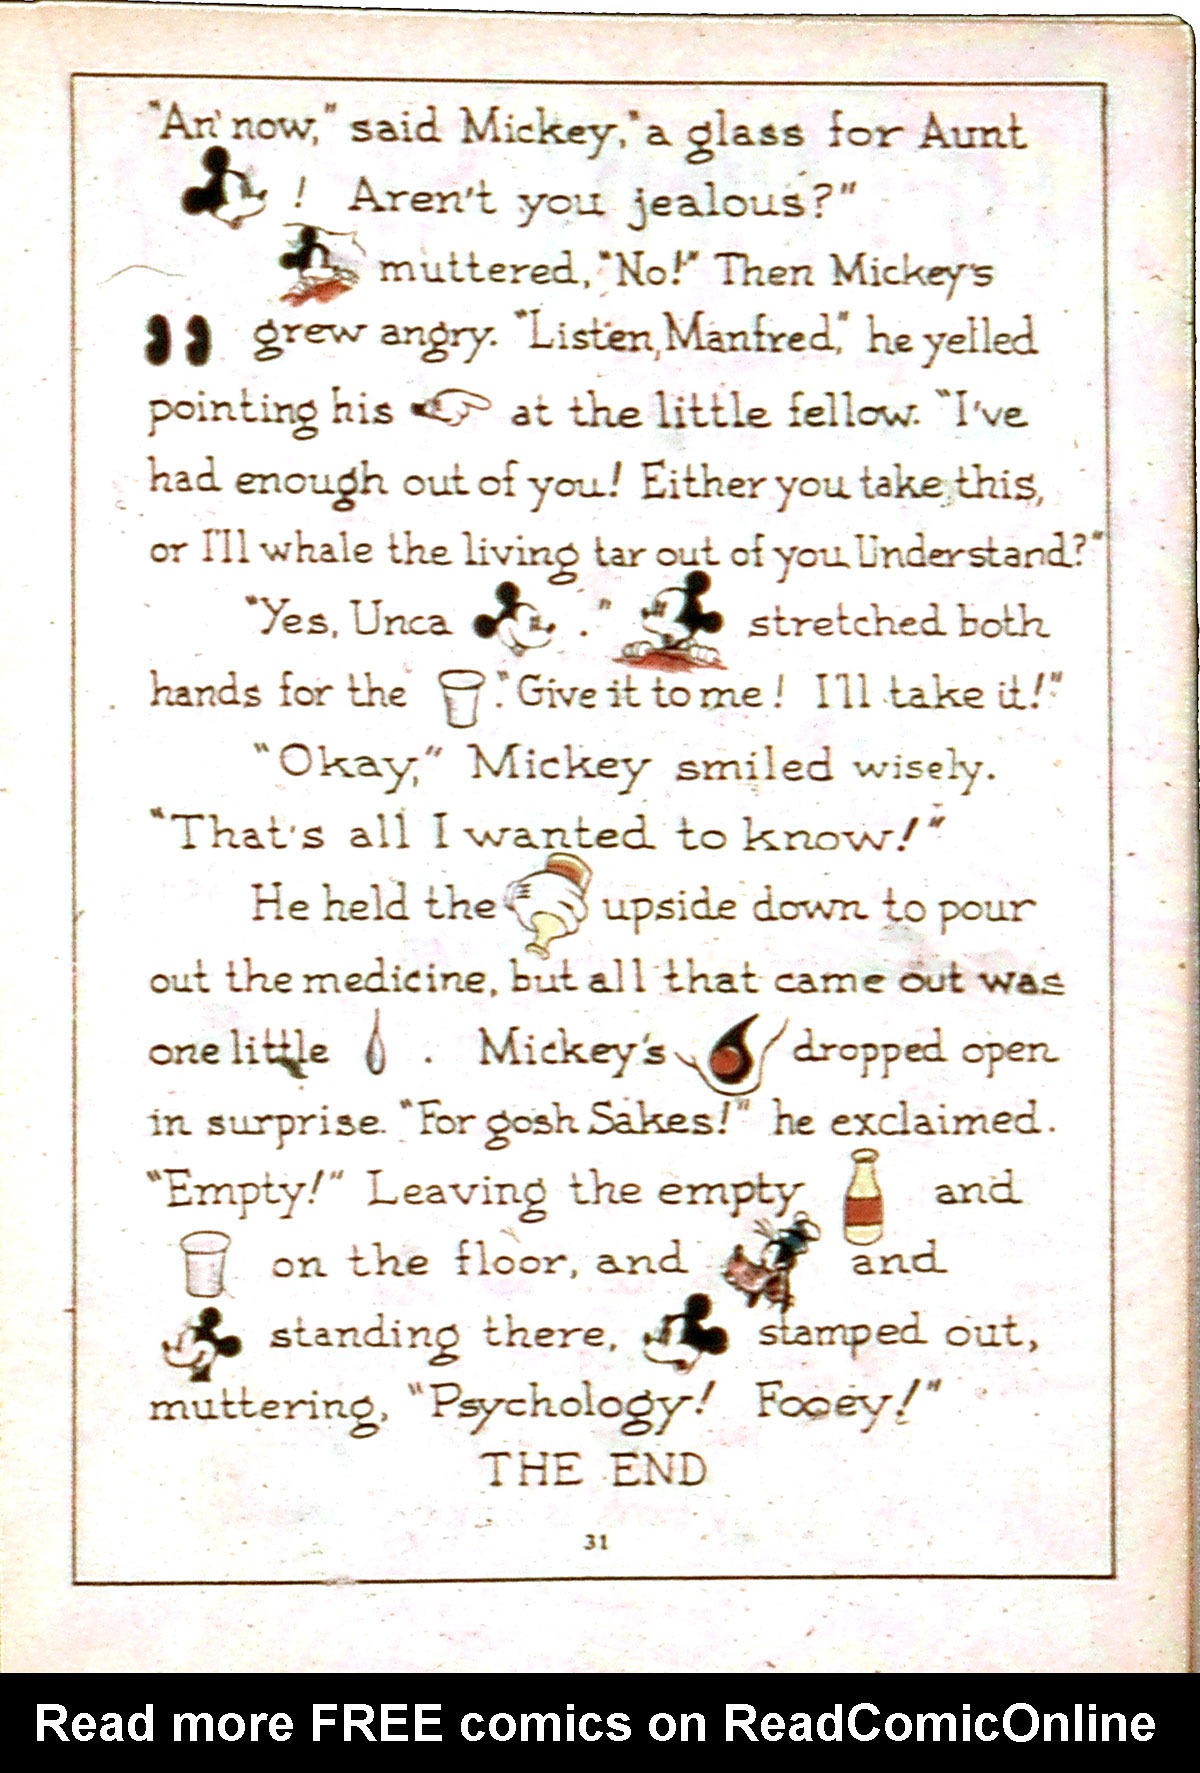 "An' now," said Mickey, "a glass for Aunt
! Aren't you jealous?"
muttered, "No!" Then Mickey's
grew angry. "Listen, Manfred," he yelled
pointing his at the little fellow. "I've
had enough out of you! Either you take this,
or I'll whale the living tar out of you Understand?"
"Yes, Unca ." stretched both
hands for the ". "Give it to me! I'll take it!"
"Okay," Mickey smiled wisely.
"That's all I wanted to know!"
He held the upside down to pour
out the medicine, but all that came out was
one little . Mickey's dropped open
in surprise. "For gosh Sakes!" he exclaimed.
"Empty!" Leaving the empty and
on the floor, and and
standing there, stamped out,
muttering, "Psychology! Fooey!"
THE END
31
Read more FREE comics on ReadComicOnline